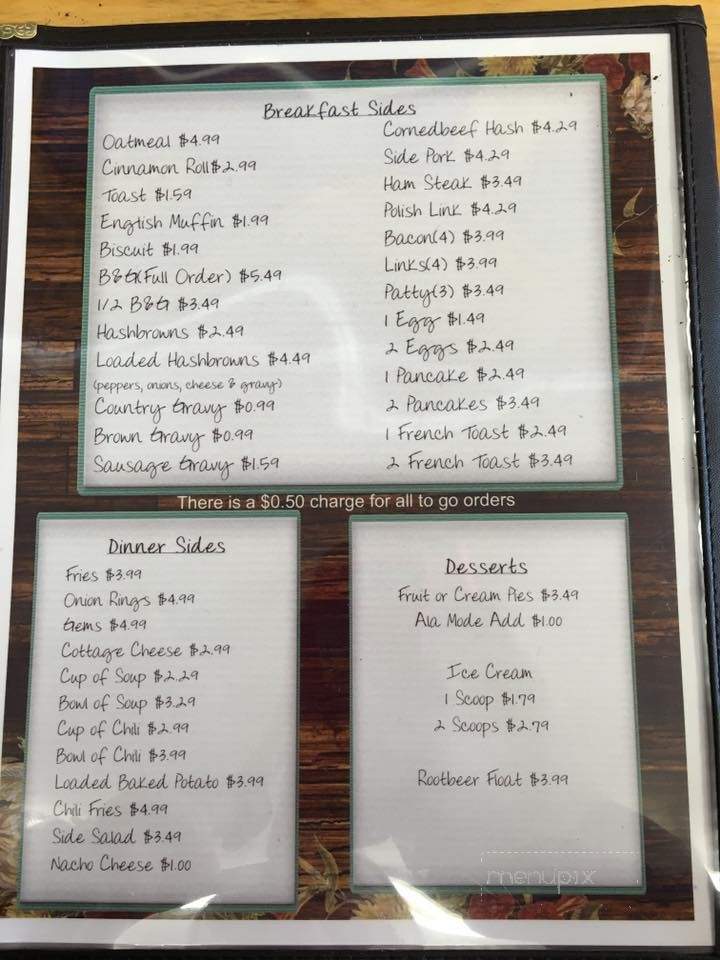 Breakfast Sides
Oatmeal $4.99
Cinnamon Roll$2.99
Toast $1.59
English Muffin $1.99
Biscuit $1.99
B&G(Full Order) $5.49
1/2 B&G $3.49
Hashbrowns $2.49
Loaded Hashbrowns $4.49
(peppers, onions, cheese & gravy)
Country Gravy $0.99
Brown Gravy $0.99
Sausage Gravy $1.59
Cornedbeef Hash $4.29
Side Pork $4.29
Ham Steak $3.49
Polish Link $4.29
Bacon(4) $3.99
Links(4) $3.99
Patty(3) $3.49
1 Egg $1.49
2 Eggs $2.49
1 Pancake $2.49
2 Pancakes $3.49
1 French Toast $2.49
2 French Toast $3.49
There is a $0.50 charge for all to go orders
Dinner Sides
Fries $3.99
Onion Rings $4.99
Gems $4.99
Cottage Cheese $2.99
Cup of Soup $2.29
Bowl of Soup $3.29
Cup of Chili $2.99
Bowl of Chili $3.99
Loaded Baked Potato $3.99
Chili Fries $4.99
Side Salad $3.49
Nacho Cheese $1.00
Desserts
Fruit or Cream Pies $3.49
Ala Mode Add $1.00
Ice Cream
1 Scoop $1.79
2 Scoops $2.79
Rootbeer Float $3.99
menupix